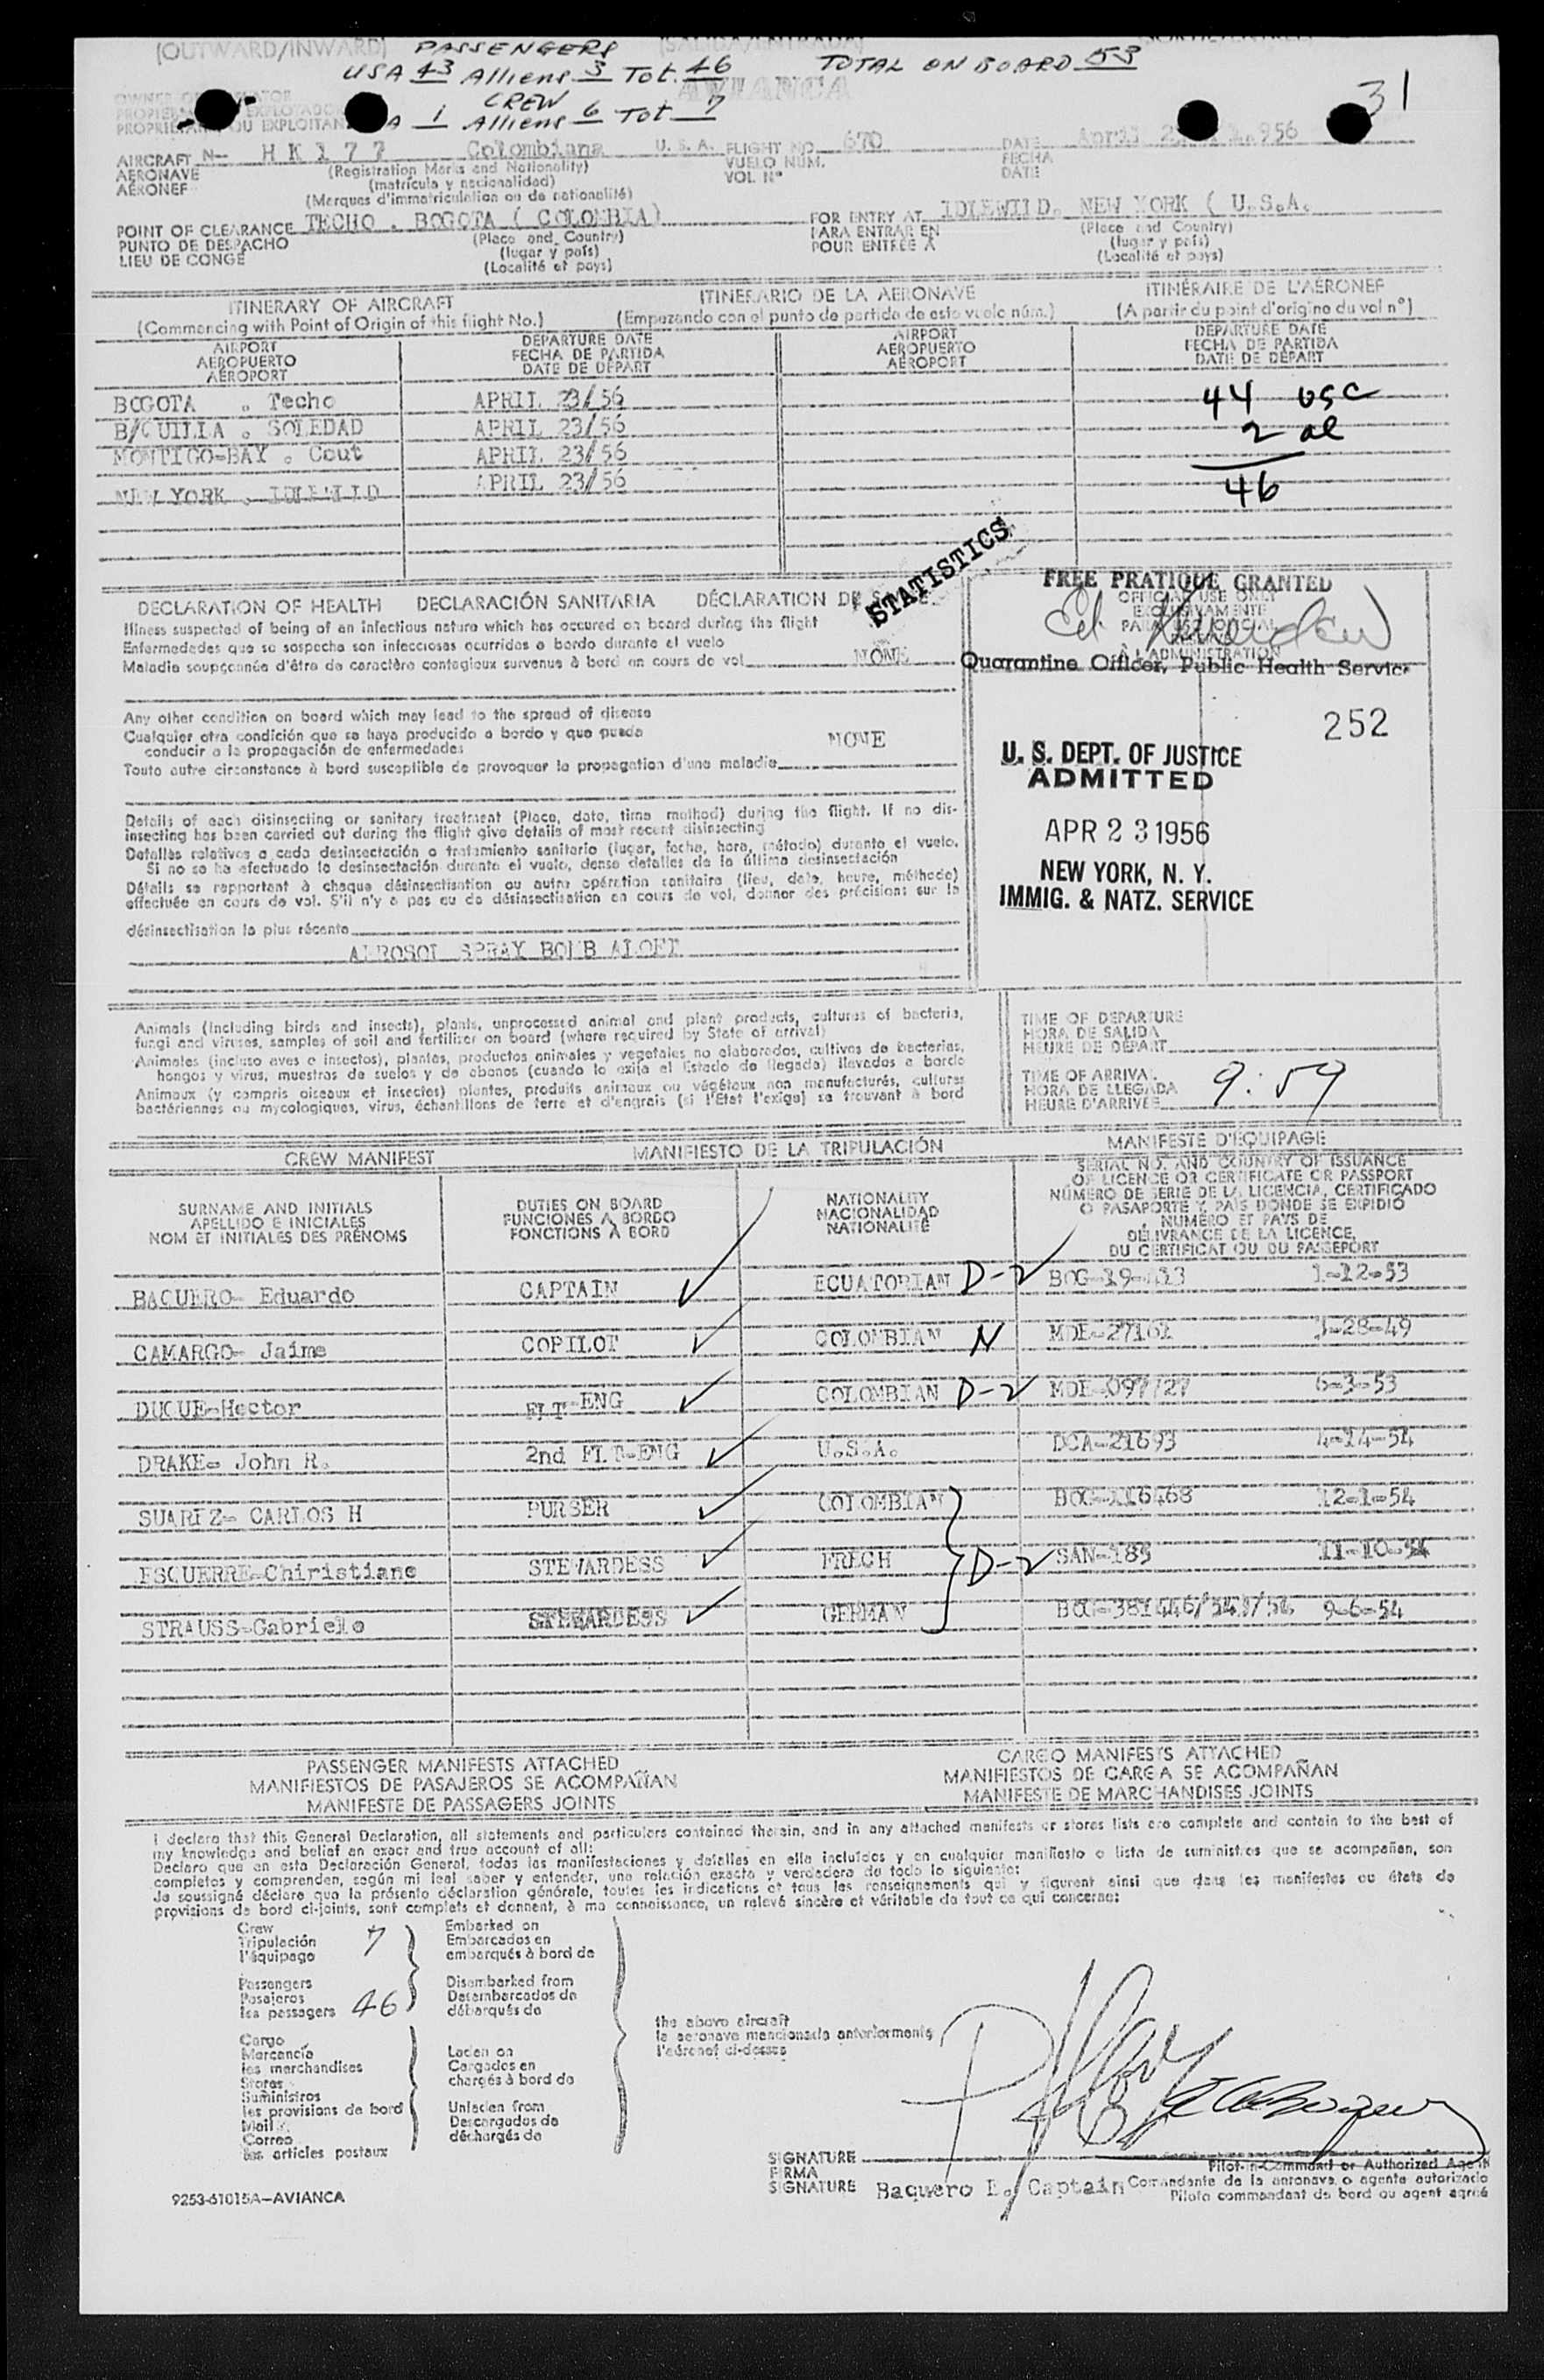 (OUTWARD/INWARD) PASSENGERS
USA 43 Alliens 3 Tot. 46 TOTAL ON BOARD 53
AVIANCA
CREW
1 Alliens 6 Tot 7
31
AIRCRAFT N- HK177 Colombiana U. S. A. FLIGHT NO. 670 DATE April
AERONAVE (Registration Marks and Nationality) VUELO NÚM. FECHA
AÉRONEF (matrícula y nacionalidad) VOL Nº DATE
(Marques d'immatriculation ou de nationalité)
POINT OF CLEARANCE TECHO . BOGOTA ( COLOMBIA) FOR ENTRY AT IDLEWILD. NEW YORK ( U.S.A.
PUNTO DE DESPACHO (Place and Country) PARA ENTRAR EN (Place and Country)
LIEU DE CONGÉ (lugar y país) POUR ENTRÉE À (lugar y país)
(Localité et pays) (Localité et pays)
ITINERARY OF AIRCRAFT ITINERARIO DE LA AERONAVE ITINÉRAIRE DE L'AÉRONEF
(Commencing with Point of Origin of this flight No.) (Empezando con el punto de partida de este vuelo núm.) (A partir du point d'origine du vol nº)
AIRPORT DEPARTURE DATE AIRPORT DEPARTURE DATE
AEROPUERTO FECHA DE PARTIDA AEROPUERTO FECHA DE PARTIDA
AÉROPORT DATE DE DÉPART AÉROPORT DATE DE DÉPART
BOGOTA . Techo APRIL 23/56 44 usc
B/QUILLA . SOLEDAD APRIL 23/56 2 al
MONTIGO-BAY . Cout APRIL 23/56
NEW YORK . IDLEWILD APRIL 23/56 46
STATISTICS
DECLARATION OF HEALTH DECLARACIÓN SANITARIA DÉCLARATION DE
Illness suspected of being of an infectious nature which has occured on board during the flight
Enfermedades que se sospecha son infecciosas ocurridas a bordo durante el vuelo
Maladie soupçonnée d'être de caractère contagieux survenue à bord en cours de vol NONE
FREE PRATIQUE GRANTED
OFFICIAL USE ONLY
EXCLUSIVAMENTE
PARA USO OFICIAL
À L'ADMINISTRATION
Quarantine Officer, Public Health Service
Any other condition on board which may lead to the spread of disease
Cualquier otra condición que se haya producido a bordo y que pueda
conducir a la propagación de enfermedades NONE
Toute autre circonstance à bord susceptible de provoquer la propagation d'une maladie
252
U. S. DEPT. OF JUSTICE
ADMITTED
APR 23 1956
NEW YORK, N. Y.
IMMIG. & NATZ. SERVICE
Details of each disinsecting or sanitary treatment (Place, date, time method) during the flight. If no dis-
insecting has been carried out during the flight give details of most recent disinsecting
Detalles relativos a cada desinsectación o tratamiento sanitario (lugar, fecha, hora, método) durante el vuelo.
Si no se ha efectuado la desinsectación durante el vuelo, dense detalles de la última desinsectación
Détails se rapportant à chaque désinsectisation ou autre opération sanitaire (lieu, date, heure, méthode)
effectuée en cours de vol. S'il n'y a pas eu de désinsectisation en cours de vol, donner des précisions sur la
désinsectisation la plus récente
AEROSOL SPRAY BOMB ALOFT
Animals (including birds and insects), plants, unprocessed animal and plant products, cultures of bacteria,
fungi and viruses, samples of soil and fertiliser on board (where required by State of arrival)
Animales (incluso aves e insectos), plantas, productos animales y vegetales no elaborados, cultivos de bacterias,
hongos y virus, muestras de suelos y de abonos (cuando lo exija el Estado de llegada) llevados a bordo
Animaux (y compris oiseaux et insectes) plantes, produits animaux ou végétaux non manufacturés, cultures
bactériennes ou mycologiques, virus, échantillons de terre et d'engrais (si l'État l'exige) se trouvant à bord
TIME OF DEPARTURE
HORA DE SALIDA
HEURE DE DÉPART
TIME OF ARRIVAL
HORA DE LLEGADA 9:59
HEURE D'ARRIVÉE
CREW MANIFEST MANIFIESTO DE LA TRIPULACIÓN MANIFESTE D'ÉQUIPAGE
SURNAME AND INITIALS DUTIES ON BOARD NATIONALITY SERIAL NO. AND COUNTRY OF ISSUANCE
APELLIDO E INICIALES FUNCIONES A BORDO NACIONALIDAD OF LICENCE OR CERTIFICATE OR PASSPORT
NOM ET INITIALES DES PRÉNOMS FONCTIONS À BORD NATIONALITÉ NÚMERO DE SERIE DE LA LICENCIA, CERTIFICADO
O PASAPORTE Y PAÍS DONDE SE EXPIDIÓ
NUMÉRO ET PAYS DE
DÉLIVRANCE DE LA LICENCE,
DU CERTIFICAT OU DU PASSEPORT
BAQUERO- Eduardo CAPTAIN ECUATORIAN D-2 1-12-53
CAMARGO- Jaime COPILOT COLOMBIAN N MDE-27161 -28-49
DUQUE-Hector FLT-ENG COLOMBIAN D-2 MDE-097727 6-3-53
DRAKE- John R. 2nd FLT-ENG U.S.A. DCA-21693 4-14-54
SUAREZ- CARLOS H PURSER COLOMBIAN BOG-116468 12-1-54
ESQUERRE-Chiristiane STEWARDESS FRECH D-2 SAN-185 11-10-54
STRAUSS-Gabriele STEWARDESS GERMAN 9-6-54
PASSENGER MANIFESTS ATTACHED CARGO MANIFESTS ATTACHED
MANIFIESTOS DE PASAJEROS SE ACOMPAÑAN MANIFIESTOS DE CARGA SE ACOMPAÑAN
MANIFESTE DE PASSAGERS JOINTS MANIFESTE DE MARCHANDISES JOINTS
I declare that this General Declaration, all statements and particulars contained therein, and in any attached manifests or stores lists are complete and contain to the best of
my knowledge and belief an exact and true account of all:
Declaro que en esta Declaración General, todas las manifestaciones y detalles en ella incluídos y en cualquier manifiesto o lista de suministros que se acompañan, son
completos y comprenden, según mi leal saber y entender, una relación exacta y verdadera de todo lo siguiente:
Je soussigné déclare que la présente déclaration générale, toutes les indications et tous les renseignements qui y figurent ainsi que dans les manifestes ou états de
provisions de bord ci-joints, sont complets et donnent, à ma connaissance, un relevé sincère et véritable de tout ce qui concerne:
Crew Embarked on
Tripulación 7 Embarcados en
l'équipage embarqués à bord de
Passengers Disembarked from
Pasajeros Desembarcados de
les passagers 46 débarqués de
the above aircraft
la aeronave mencionada anteriormente
l'aéronef ci-dessus
Cargo
Mercancía Laden on
les marchandises Cargados en
Stores chargés à bord de
Suministros
les provisions de bord Unladen from
Mail Descargados de
Correo déchargés de
les articles postaux
SIGNATURE Pilot-in-Command or Authorized Agent
FIRMA Comandante de la aeronave o agente autorizado
SIGNATURE Baquero E. Captain Pilote commandant de bord ou agent agréé
9253-61015A—AVIANCA